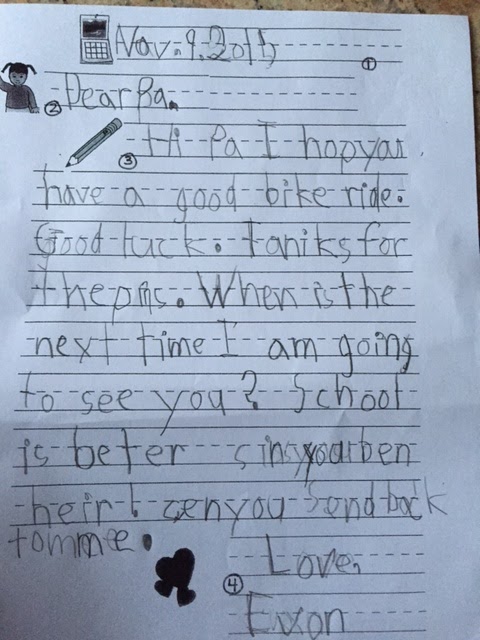 Nov. 9. 2015
①
② Dear Pa.
③ Hi Pa I hop you
have a good bike ride.
Good luck. taniks for
the pins. When is the
next time I am going
to see you? School
is beter sins you ben
heir! cen you Send back
tommee.
Love,
④
Exxon